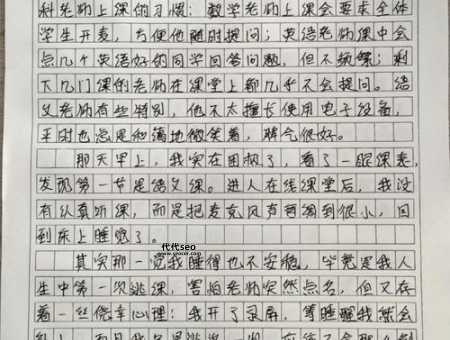 科老师上课的习惯：数学老师上课会要求全体
学生开麦，方便他随时提问；英语老师课中会
点几个英语好的同学回答问题，但不频繁；剩
下几门课的老师在课堂上都几乎不会提问。语
文老师有些特别，他不太擅长使用电子设备，
平时也总是和蔼地微笑着，脾气很好。
那天早上，我实在困极了，看了一眼课表，
发现第一节是语文课。进入在线课堂后，我没
有认真听课，而是把麦克风声音调到很小，回
到床上睡觉了。
代代seo
其实那一觉我睡得也不安稳，毕竟是我人
生中第一次逃课，害怕老师突然点名，但又存
着一丝侥幸心理：我开了录屏，等睡醒我就会